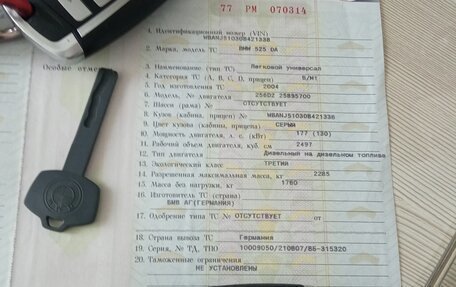 77 РМ 070314
1. Идентификационный номер (VIN)
WBANJ51030B421338
2. Марка, модель ТС БМW 525 DA
3. Наименование (тип ТС) Легковой универсал
4. Категория ТС (А, В, С, D, прицеп) B/M1
5. Год изготовления ТС 2004
6. Модель, № двигателя 256D2 25895700
7. Шасси (рама) № ОТСУТСТВУЕТ
Особые отмет
8. Кузов (кабина, прицеп) № WBANJ51030B421338
9. Цвет кузова (кабины, прицепа) СЕРЫЙ
10. Мощность двигателя, л. с. (кВт) 177 (130)
11. Рабочий объем двигателя, куб. см 2497
12. Тип двигателя Дизельный на дизельном топливе
13. Экологический класс ТРЕТИЙ
14. Разрешенная максимальная масса, кг 2285
15. Масса без нагрузки, кг 1760
16. Изготовитель ТС (страна)
БМВ АГ(ГЕРМАНИЯ)
17. Одобрение типа ТС № ОТСУТСТВУЕТ от
18. Страна вывоза ТС Германия
19. Серия, № ТД, ТПО 10009050/210807/ВБ-315320
20. Таможенные ограничения
НЕ УСТАНОВЛЕНЫ